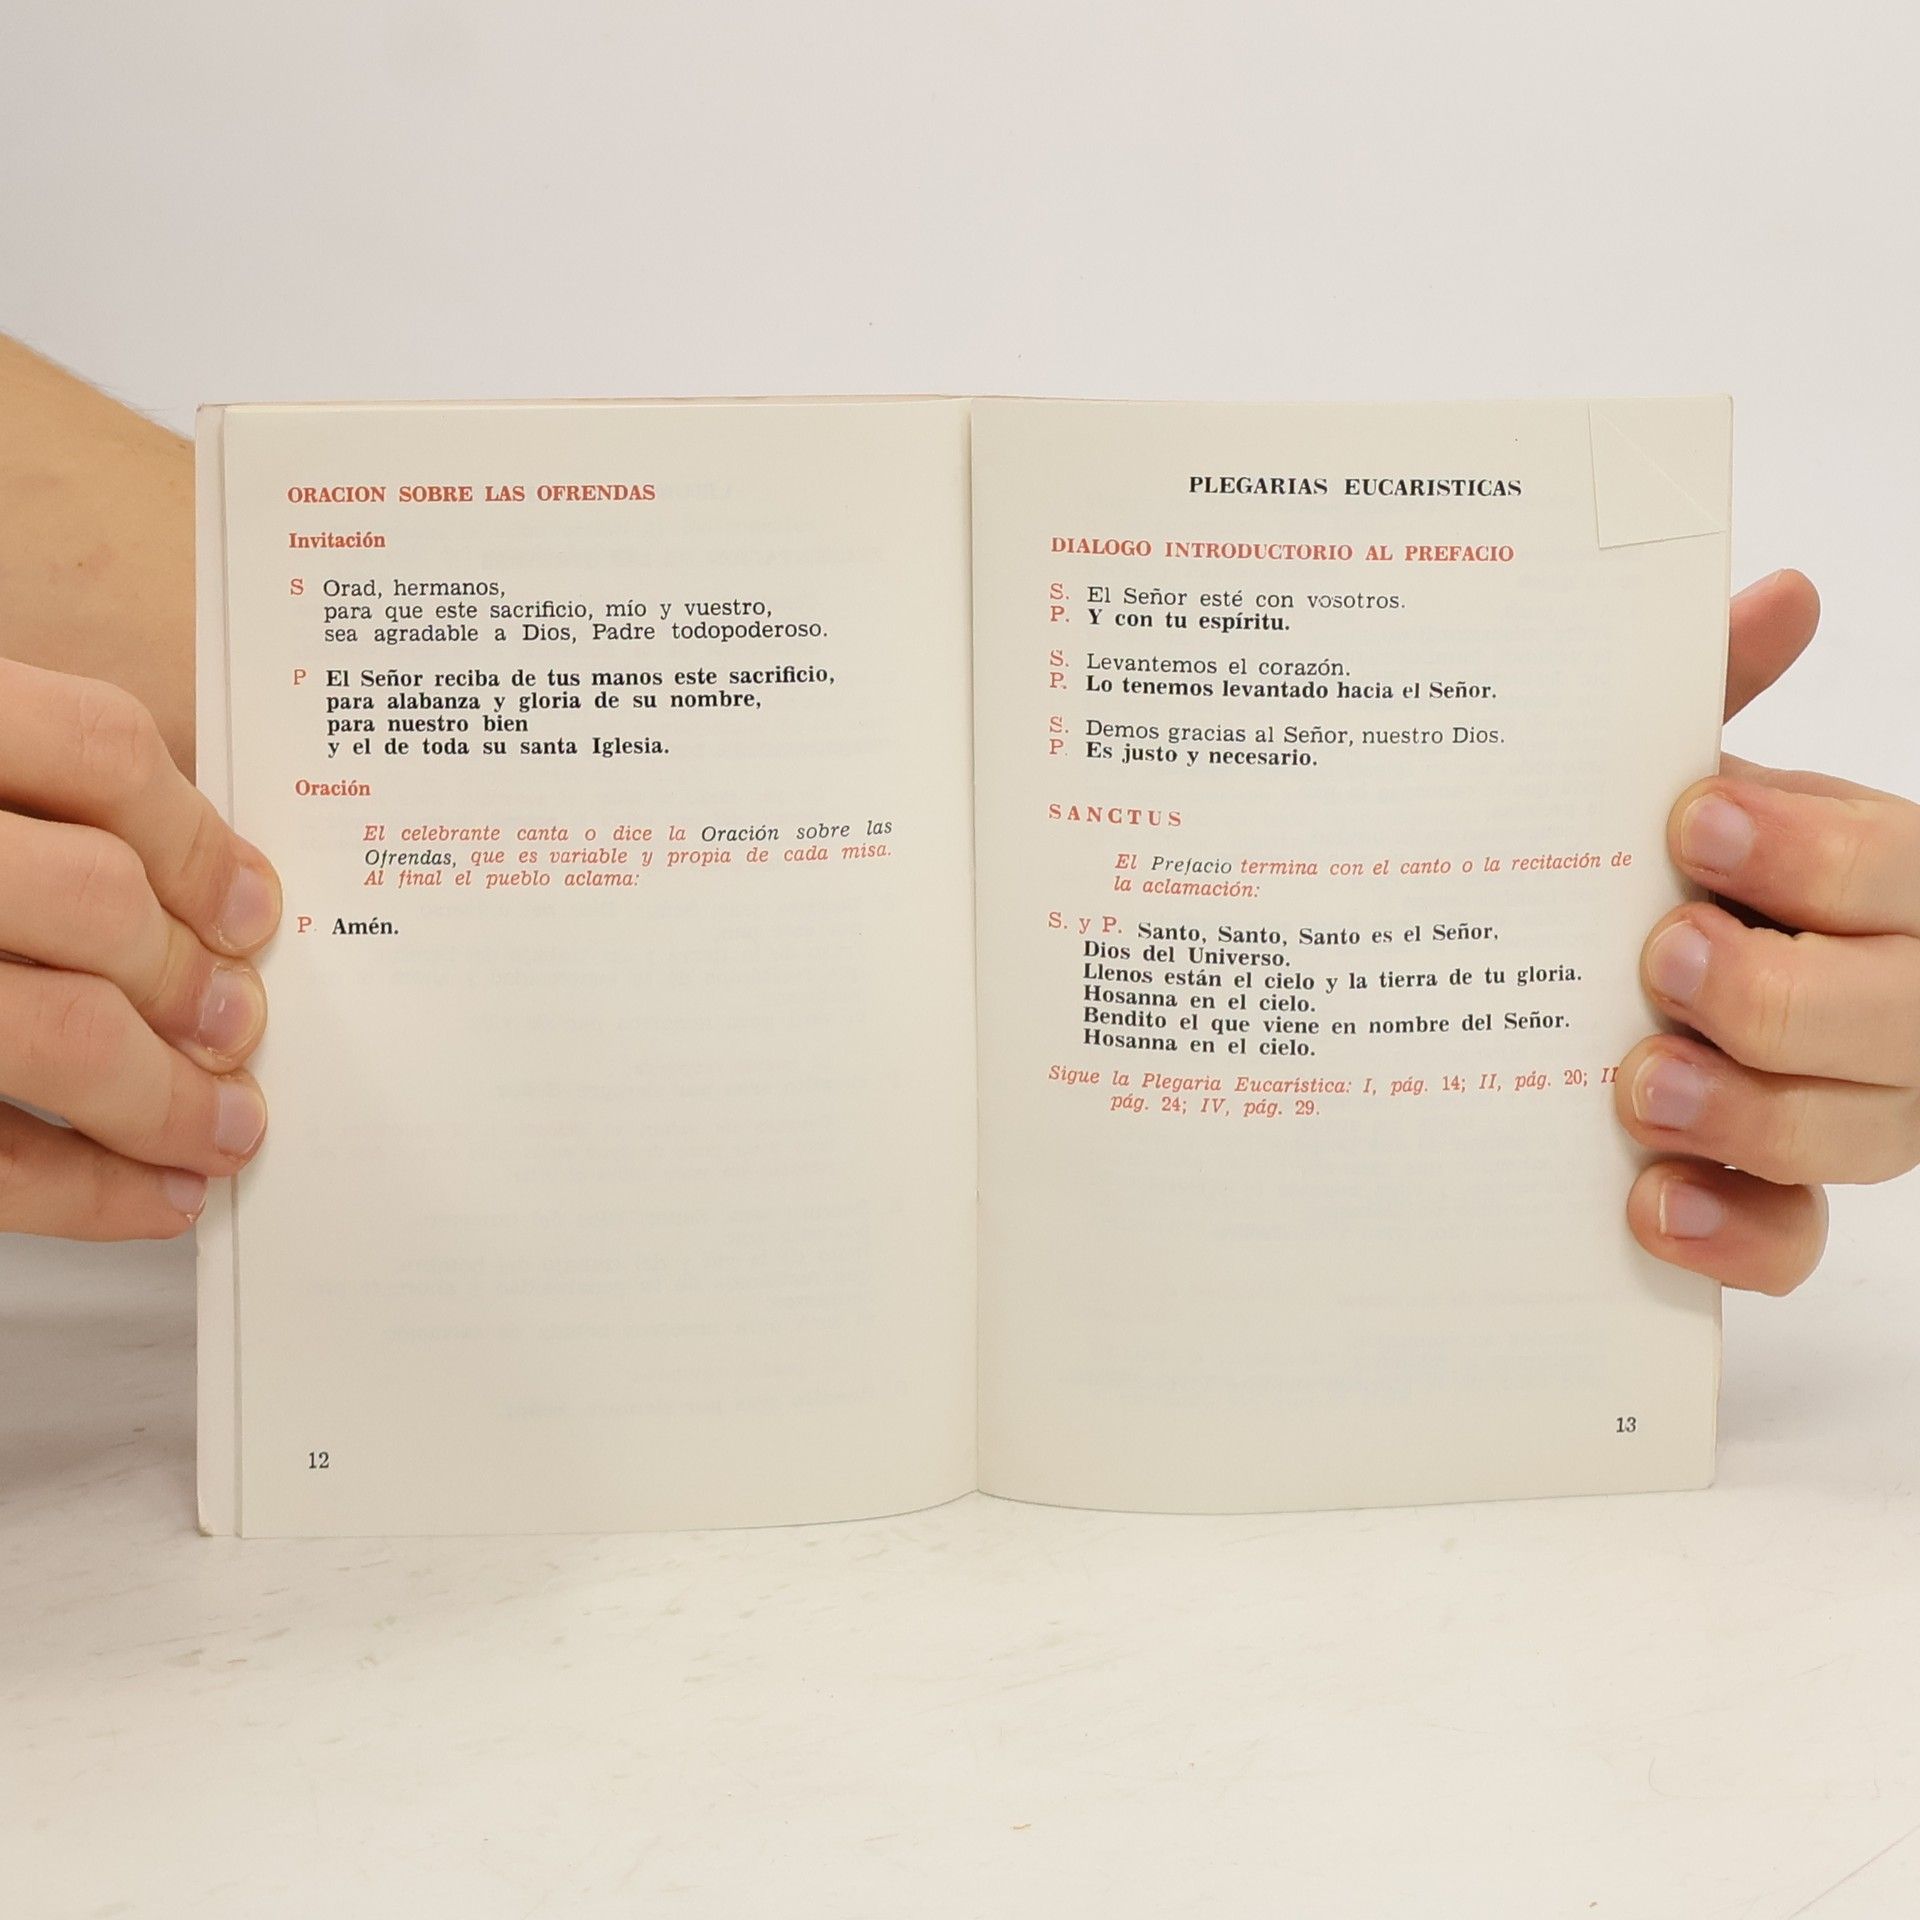 ORACION SOBRE LAS OFRENDAS
Invitación
S Orad, hermanos,
para que este sacrificio, mío y vuestro,
sea agradable a Dios, Padre todopoderoso.
P El Señor reciba de tus manos este sacrificio,
para alabanza y gloria de su nombre,
para nuestro bien
y el de toda su santa Iglesia.
Oración
El celebrante canta o dice la Oración sobre las
Ofrendas, que es variable y propia de cada misa.
Al final el pueblo aclama:
P. Amén.
12
PLEGARIAS EUCARISTICAS
DIALOGO INTRODUCTORIO AL PREFACIO
S. El Señor esté con vosotros.
P. Y con tu espíritu.
S. Levantemos el corazón.
P. Lo tenemos levantado hacia el Señor.
S. Demos gracias al Señor, nuestro Dios.
P. Es justo y necesario.
SANCTUS
El Prefacio termina con el canto o la recitación de
la aclamación:
S. y P. Santo, Santo, Santo es el Señor,
Dios del Universo.
Llenos están el cielo y la tierra de tu gloria.
Hosanna en el cielo.
Bendito el que viene en nombre del Señor.
Hosanna en el cielo.
Sigue la Plegaria Eucarística: I, pág. 14; II, pág. 20;
pág. 24; IV, pág. 29.
13